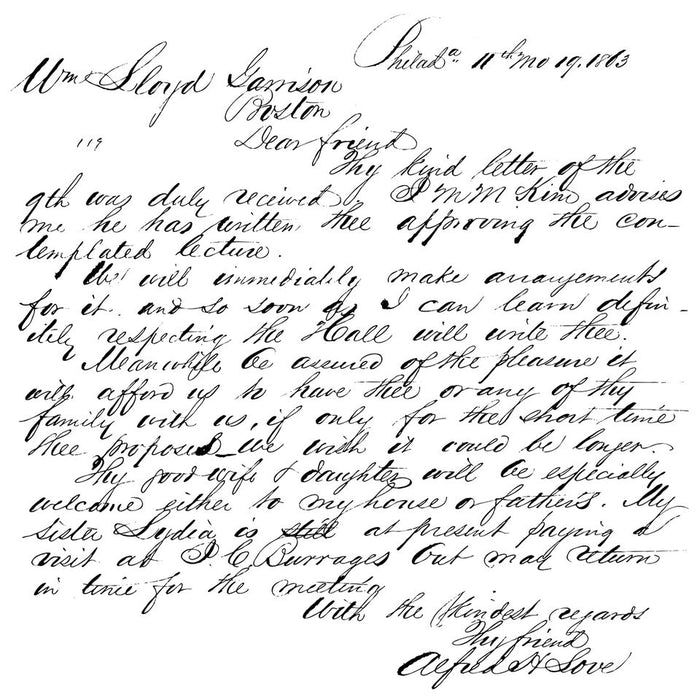 Philad.a 11th mo 19. 1863
Wm. Lloyd Garrison
Boston
119
Dear friend
Thy kind letter of the
9th was duly received. J M M Kim advises
me he has written thee approving the con-
templated lecture.
We will immediately make arrangements
for it. and so soon as I can learn defin-
itely respecting the Hall will write thee.
Meanwhile be assured of the pleasure it
will afford us to have thee or any of thy
family with us, if only for the short time
thee proposes_we wish it could be longer.
Thy good wife & daughter will be especially
welcome either to my house or father's. My
sister Lydia is still at present paying a
visit at J. C. Burrages but may return
in time for the meeting
With the kindest regards
Thy friend
Alfred H Love